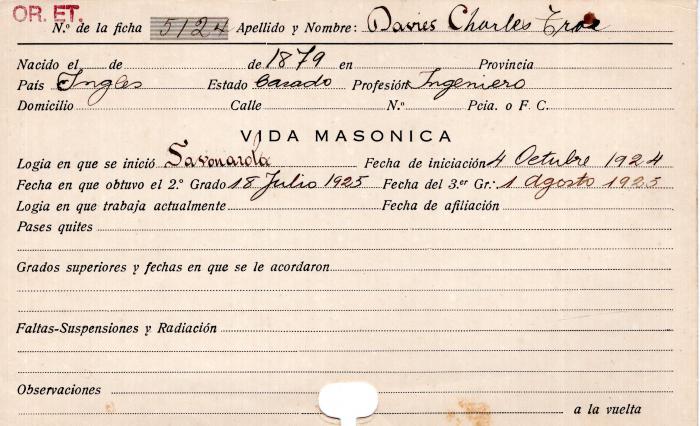 OR. ET.
N.º de la ficha 5124 Apellido y Nombre: Davies Charles
Nacido el de de 1879 en Provincia
País Ingles Estado Casado Profesión Ingeniero
Domicilio Calle N.º Pcia. o F. C.
VIDA MASONICA
Logia en que se inició Savonarola Fecha de iniciación 4 Octubre 1924
Fecha en que obtuvo el 2.º Grado 18 Julio 1925 Fecha del 3.er Gr: 1 Agosto 1925
Logia en que trabaja actualmente Fecha de afiliación
Pases quites
Grados superiores y fechas en que se le acordaron
Faltas-Suspensiones y Radiación
Observaciones
a la vuelta